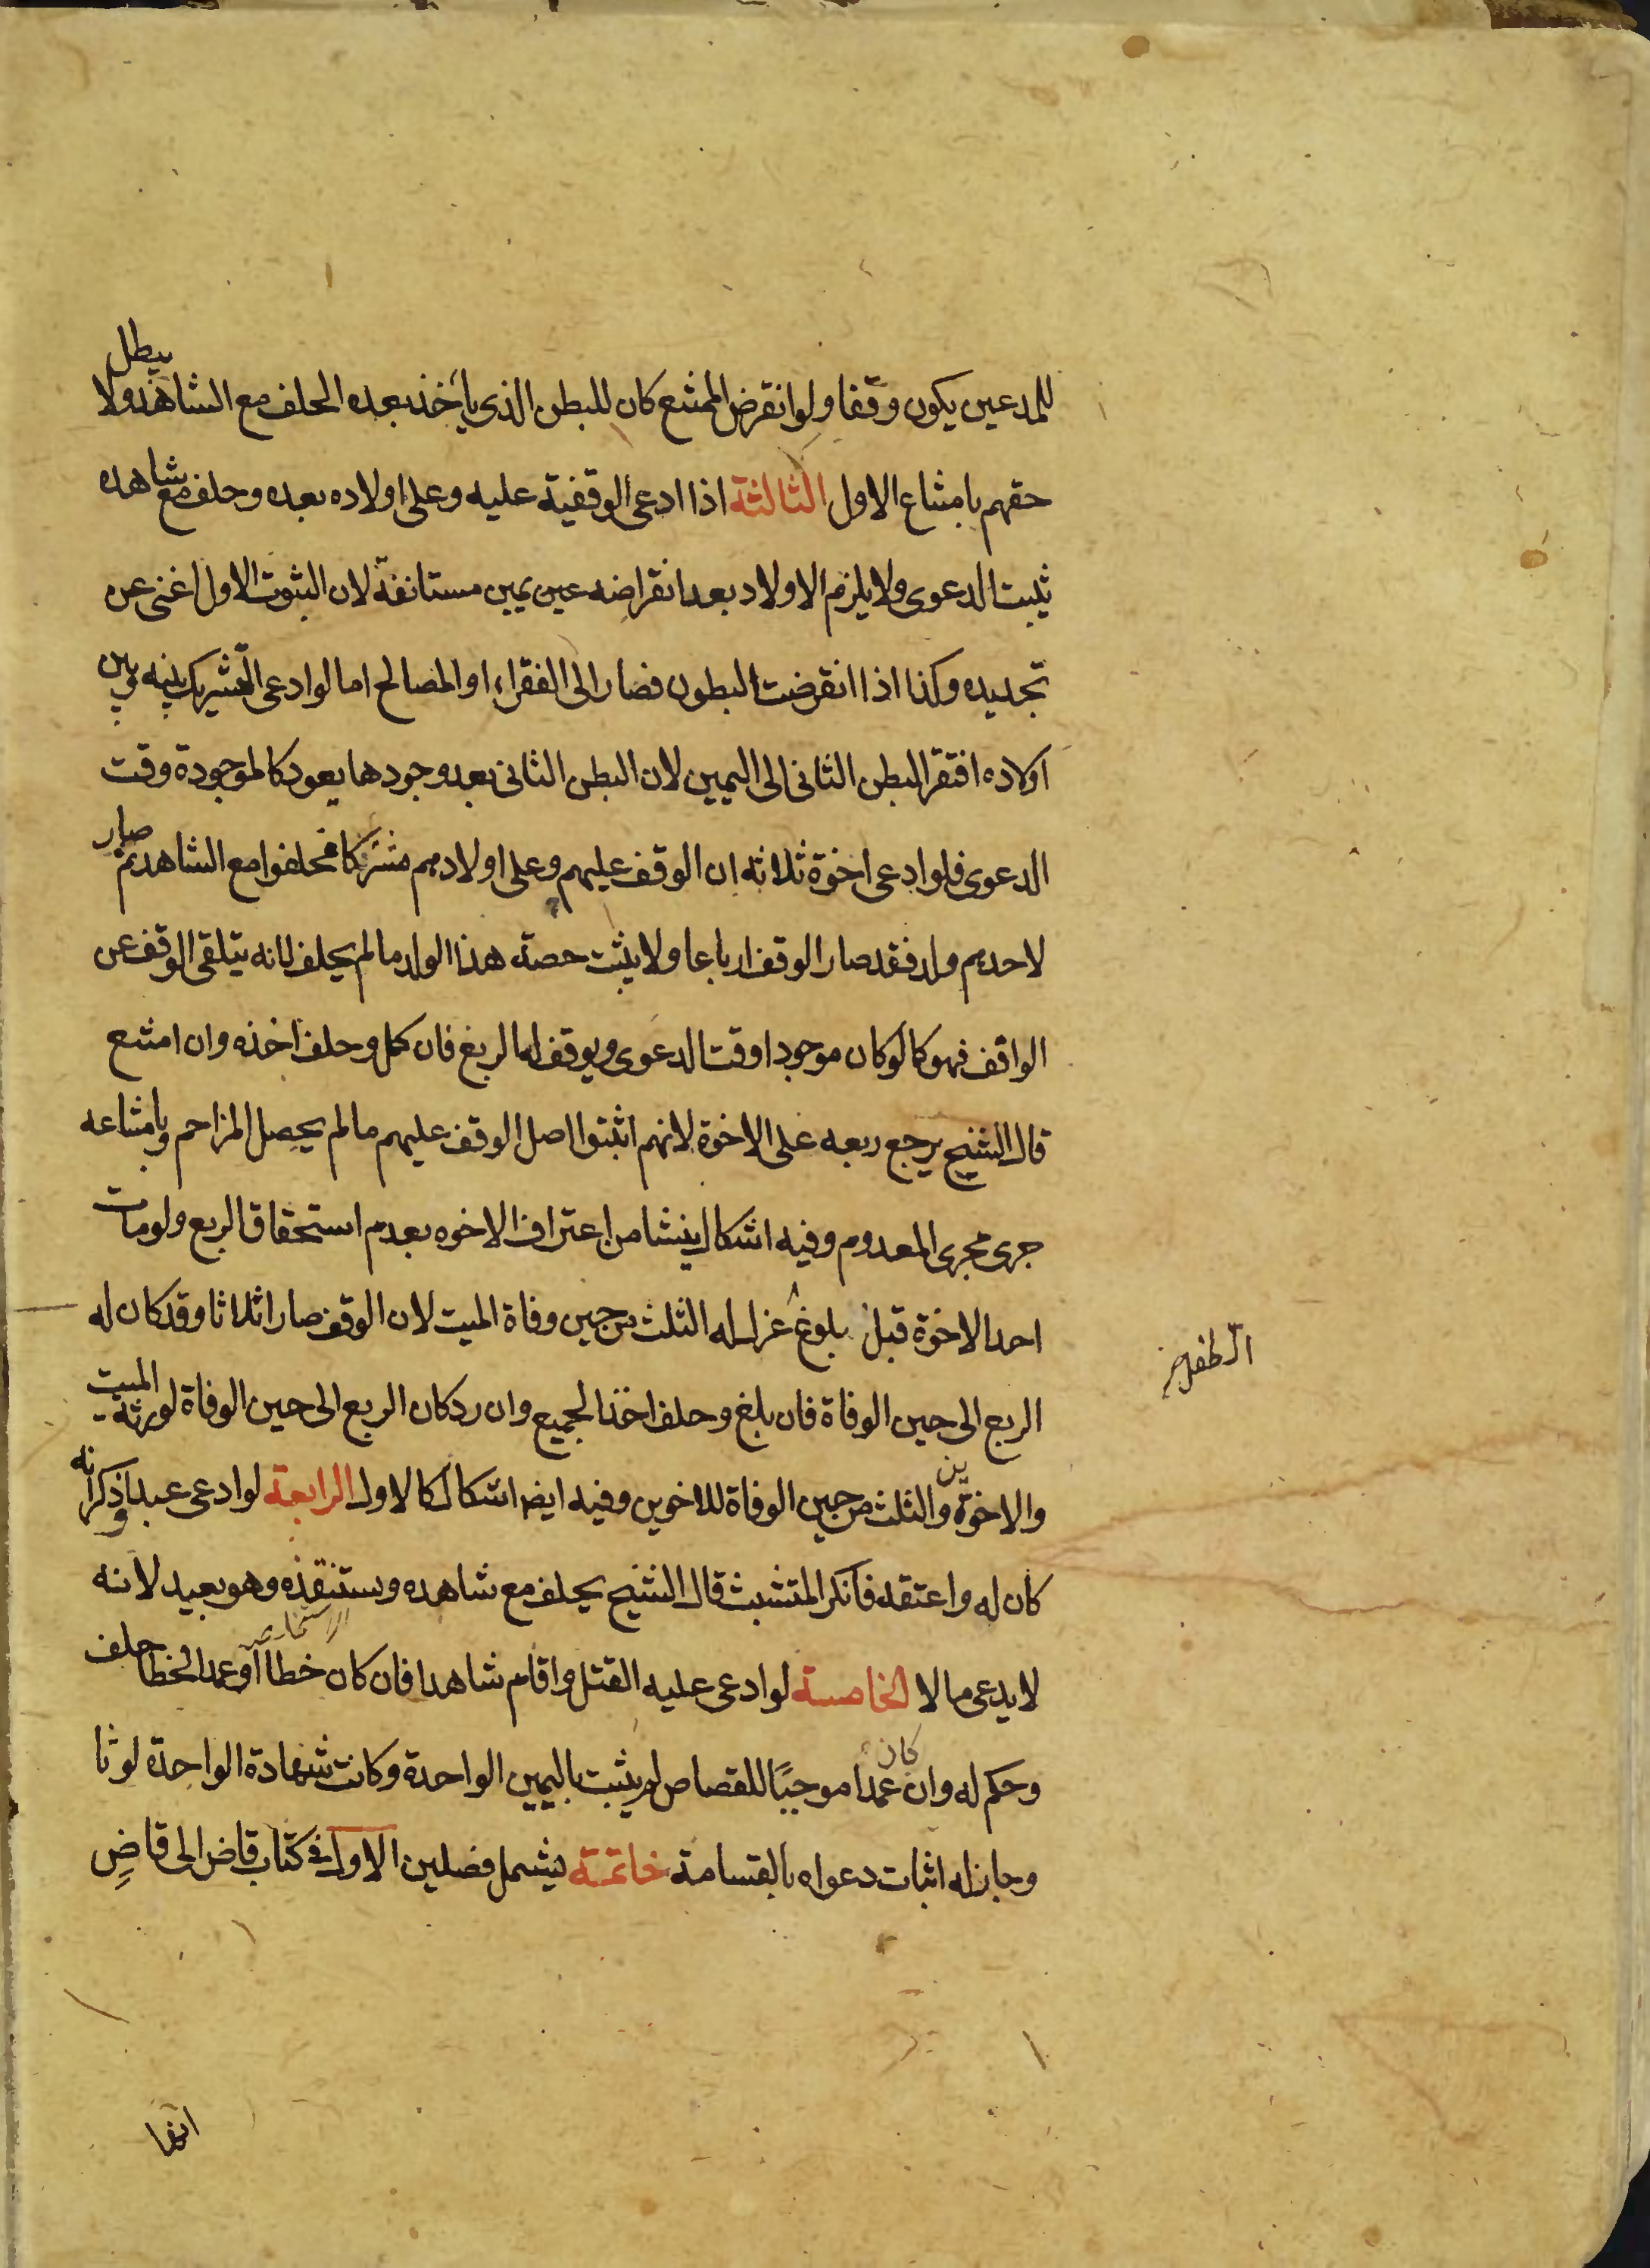 للمدعين يكون وقفا ولو انقرض الممتنع كان للبطن الذى يأخذ بعده الحلف مع الشاهد ولا يبطل
حقهم بامتناع الاول الثالثة اذا ادعى الوقفية عليه وعلى اولاده بعده وحلف مع شاهده
ثبيت الدعوى ولا يلزم الاولاد بعد انقراضه عين يمين مستانفة لان الثبوت الاول اغنى عن
تجديده وكذا اذا انقرضت البطون فصار الى الفقراء او المصالح اما لو ادعى التشريك بينه وبين
اولاده افتقر البطن الثانى الى اليمين لان البطن الثانى بعد وجودها يعود كالموجودة وقت
الدعوى فلو ادعى اخوة ثلاثة ان الوقف عليهم وعلى اولادهم مشتركا فحلفوا مع الشاهد ثم صار
لاحدهم ولد فقد صار الوقف ارباعا ولا يثبت حصة هذا الولد مالم يحلف لانه يتلقى الوقف عن
الواقف فهو كما لو كان موجودا وقت الدعوى ويوقف له الربع فان كمل وحلف اخذه وان امتنع
قال الشيخ يرجع ربعه على الاخوة لانهم اثبتوا اصل الوقف عليهم مالم يحصل المزاحم وبامتناعه
جرى مجرى المعدوم وفيه اشكال ينشا من اعتراف الاخوه بعدم استحقاق الربع ولو مات
احد الاخوة قبل بلوغ عزل له الثلث من حين وفاة الميت لان الوقف صار اثلاثا وقد كان له
الطفل
الربع الى حين الوفاة فان بلغ وحلف اخذ الجميع وان رد كان الربع الى حين الوفاة لورثة الميت
والاخوين والثلث من حين الوفاة للاخوين وفيه ايضا اشكال كالاول الرابعة لو ادعى عبدا وذكر انه
كان له واعتقه فانكر المتشبث قال الشيخ يحلف مع شاهده ويستنقذه وهو بعيد لانه
لا يدعى مالا الخامسة لو ادعى عليه القتل واقام شاهدا فان كان خطأ او عمد الخطا حلف
وحكم له وان كان عمدا موجبًا للقصاص لم يثبت باليمين الواحدة وكانت شهادة الواحدة لوثا
وجاز له اثبات دعواه بالقسامة خاتمة يشمل فصلين الاول فى كتاب قاض الى قاضٍ